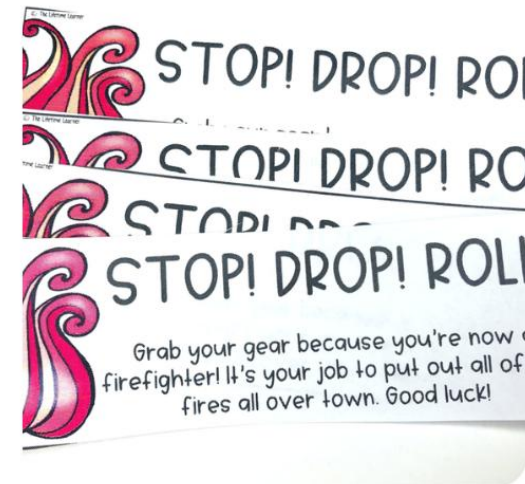 © The Lifetime Learner
STOP! DROP! RO
© The Lifetime Learner
STOP! DROP! RO
time Learner
STOP!
STOP! DROP! ROLL
Grab your gear because you're now
firefighter! It's your job to put out all of
fires all over town. Good luck!